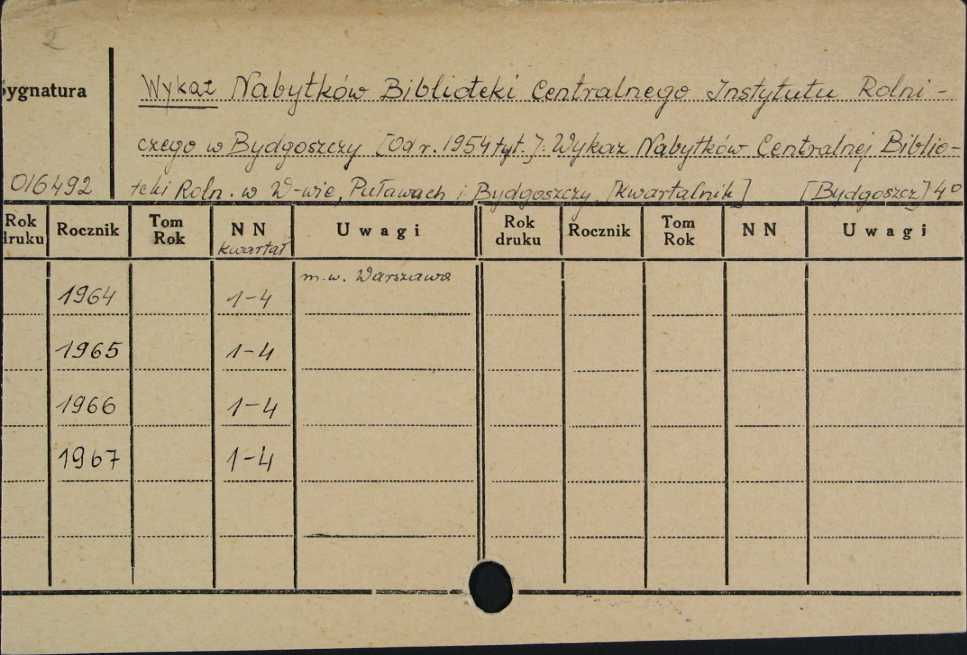 2
Sygnatura
Wykaz Nabytków Biblioteki Centralnego Instytutu Rolni-
czego w Bydgoszczy [Od r. 1954 tyt.]: Wykaz Nabytków Centralnej Biblio-
016492 teki Roln. w W-wie, Puławach i Bydgoszczy. [kwartalnik] [Bydgoszcz] 4°
Rok druku Rocznik Tom Rok NN kwartał Uwagi Rok druku Rocznik Tom Rok NN Uwagi
m.w. Warszawa
1964 1-4
1965 1-4
1966 1-4
1967 1-4